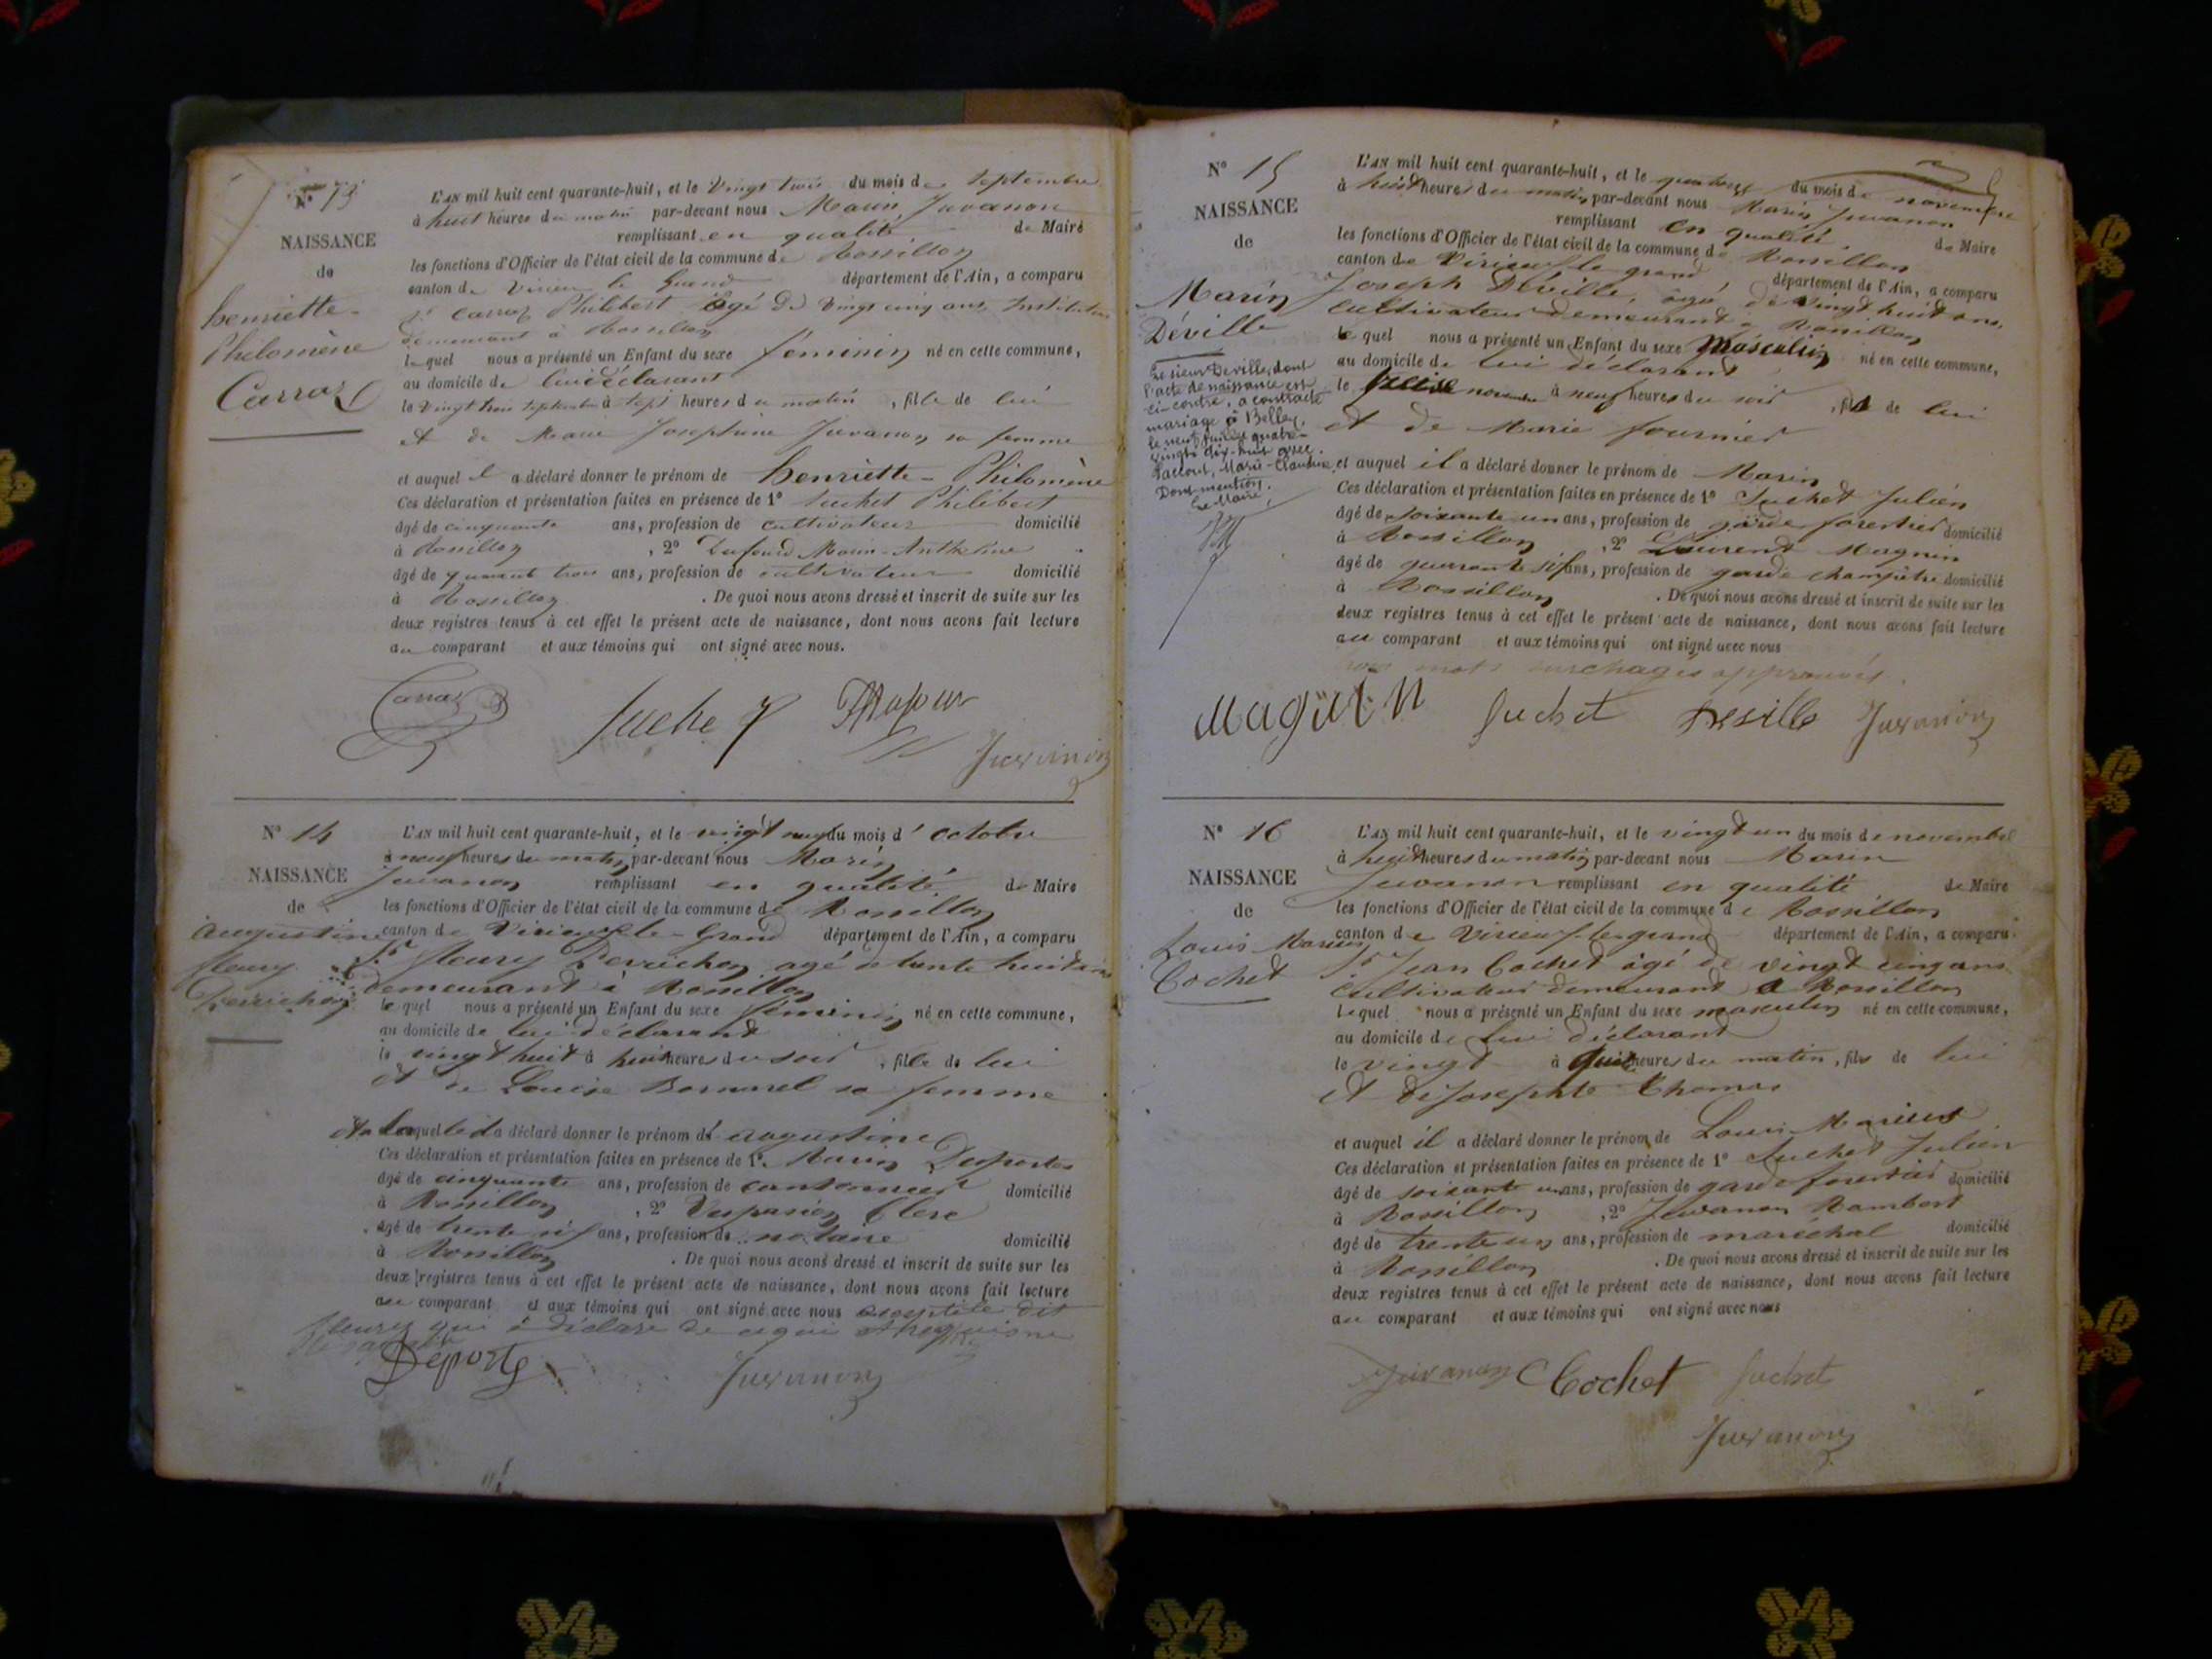 N° 13
NAISSANCE
de
henriette-
Philomène
Carraz
L'AN mil huit cent quarante-huit, et le Vingt trois du mois de Septembre
à huit heures du matin par-devant nous Marin Juvanon
remplissant en qualité de Maire
les fonctions d'Officier de l'état civil de la commune de Rossillon
canton de Virieu le Grand département de l'Ain, a comparu
Sr Carraz Philibert âgé de Vingt cinq ans, Instituteur
demeurant à Rossillon
lequel nous a présenté un Enfant du sexe féminin né en cette commune,
au domicile de lui déclarant
le Vingt trois septembre à sept heures du matin, fille de lui
et de Marie Josephine Juvanon sa femme
et auquel il a déclaré donner le prénom de henriette-Philomène
Ces déclaration et présentation faites en présence de 1° Suchet Philibert
âgé de cinquante ans, profession de cultivateur domicilié
à Rossillon, 2° Dufour Marin-Anthelme
âgé de quarante trois ans, profession de cultivateur domicilié
à Rossillon. De quoi nous avons dressé et inscrit de suite sur les
deux registres tenus à cet effet le présent acte de naissance, dont nous avons fait lecture
au comparant et aux témoins qui ont signé avec nous.
Carraz Suchet Dufour
Juvanon
N° 14
NAISSANCE
de
Augustine
fleury
Perrichon
L'AN mil huit cent quarante-huit, et le vingt neuf du mois d'octobre
à neuf heures du matin par-devant nous Marin
Juvanon remplissant en qualité de Maire
les fonctions d'Officier de l'état civil de la commune de Rossillon
canton de Virieu-le-Grand département de l'Ain, a comparu
Sr fleury Perrichon agé de trente huit ans
demeurant à Rossillon
lequel nous a présenté un Enfant du sexe féminin né en cette commune,
au domicile de lui déclarant
le vingt huit à huit heures du soir, fille de lui
et de Louise sa femme
et a laquelle il a déclaré donner le prénom de augustine
Ces déclaration et présentation faites en présence de 1° Marin Desportes
âgé de cinquante ans, profession de cantonnier domicilié
à Rossillon, 2° Vespasien Clerc
âgé de trente six ans, profession de notaire domicilié
à Rossillon. De quoi nous avons dressé et inscrit de suite sur les
deux registres tenus à cet effet le présent acte de naissance, dont nous avons fait lecture
au comparant et aux témoins qui ont signé avec nous excepté le dit
fleury qui a déclaré de ce
Deporte Juvanon
N° 15
NAISSANCE
de
Marin
Déville
Le sieur Deville, dont
l'acte de naissance est
ci-contre, a contracté
mariage à Belley,
le neuf quatre-
vingt dix-huit avec
Marie-Claudine
Dont mention.
Le Maire,
L'AN mil huit cent quarante-huit, et le quatorze du mois de novembre
à huit heures du matin par-devant nous Marin Juvanon
remplissant en qualité de Maire
les fonctions d'Officier de l'état civil de la commune de Rossillon
canton de Virieu-le-grand département de l'Ain, a comparu
Joseph Déville, âgé de vingt huit ans,
cultivateur demeurant à Rossillon
lequel nous a présenté un Enfant du sexe Masculin né en cette commune,
au domicile de lui déclarant
le treize novembre à neuf heures du soir, fils de lui
et de Marie fournier
et auquel il a déclaré donner le prénom de Marin
Ces déclaration et présentation faites en présence de 1° Suchet Julien
âgé de soixante un ans, profession de garde forestier domicilié
à Rossillon, 2° Laurent Magnin
âgé de quarante six ans, profession de garde champêtre domicilié
à Rossillon. De quoi nous avons dressé et inscrit de suite sur les
deux registres tenus à cet effet le présent acte de naissance, dont nous avons fait lecture
au comparant et aux témoins qui ont signé avec nous
mots surchagés approuvés.
Magnin Suchet Deville Juvanon
N° 16
NAISSANCE
de
Louis Marius
Cochet
L'AN mil huit cent quarante-huit, et le vingt un du mois de novembre
à huit heures du matin par-devant nous Marin
Juvanon remplissant en qualité de Maire
les fonctions d'Officier de l'état civil de la commune de Rossillon
canton de Virieu-le-grand département de l'Ain, a comparu
Sr Jean Cochet âgé de vingt cinq ans
cultivateur demeurant à Rossillon
lequel nous a présenté un Enfant du sexe masculin né en cette commune,
au domicile de lui déclarant
le vingt à heures du matin, fils de lui
et de Josephte Thomas
et auquel il a déclaré donner le prénom de Louis Marius
Ces déclaration et présentation faites en présence de 1° Suchet Julien
âgé de soixante un ans, profession de garde forestier domicilié
à Rossillon, 2° Juvanon Rambert
âgé de trente un ans, profession de maréchal domicilié
à Rossillon. De quoi nous avons dressé et inscrit de suite sur les
deux registres tenus à cet effet le présent acte de naissance, dont nous avons fait lecture
au comparant et aux témoins qui ont signé avec nous
Juvanon Cochet Suchet
Juvanon